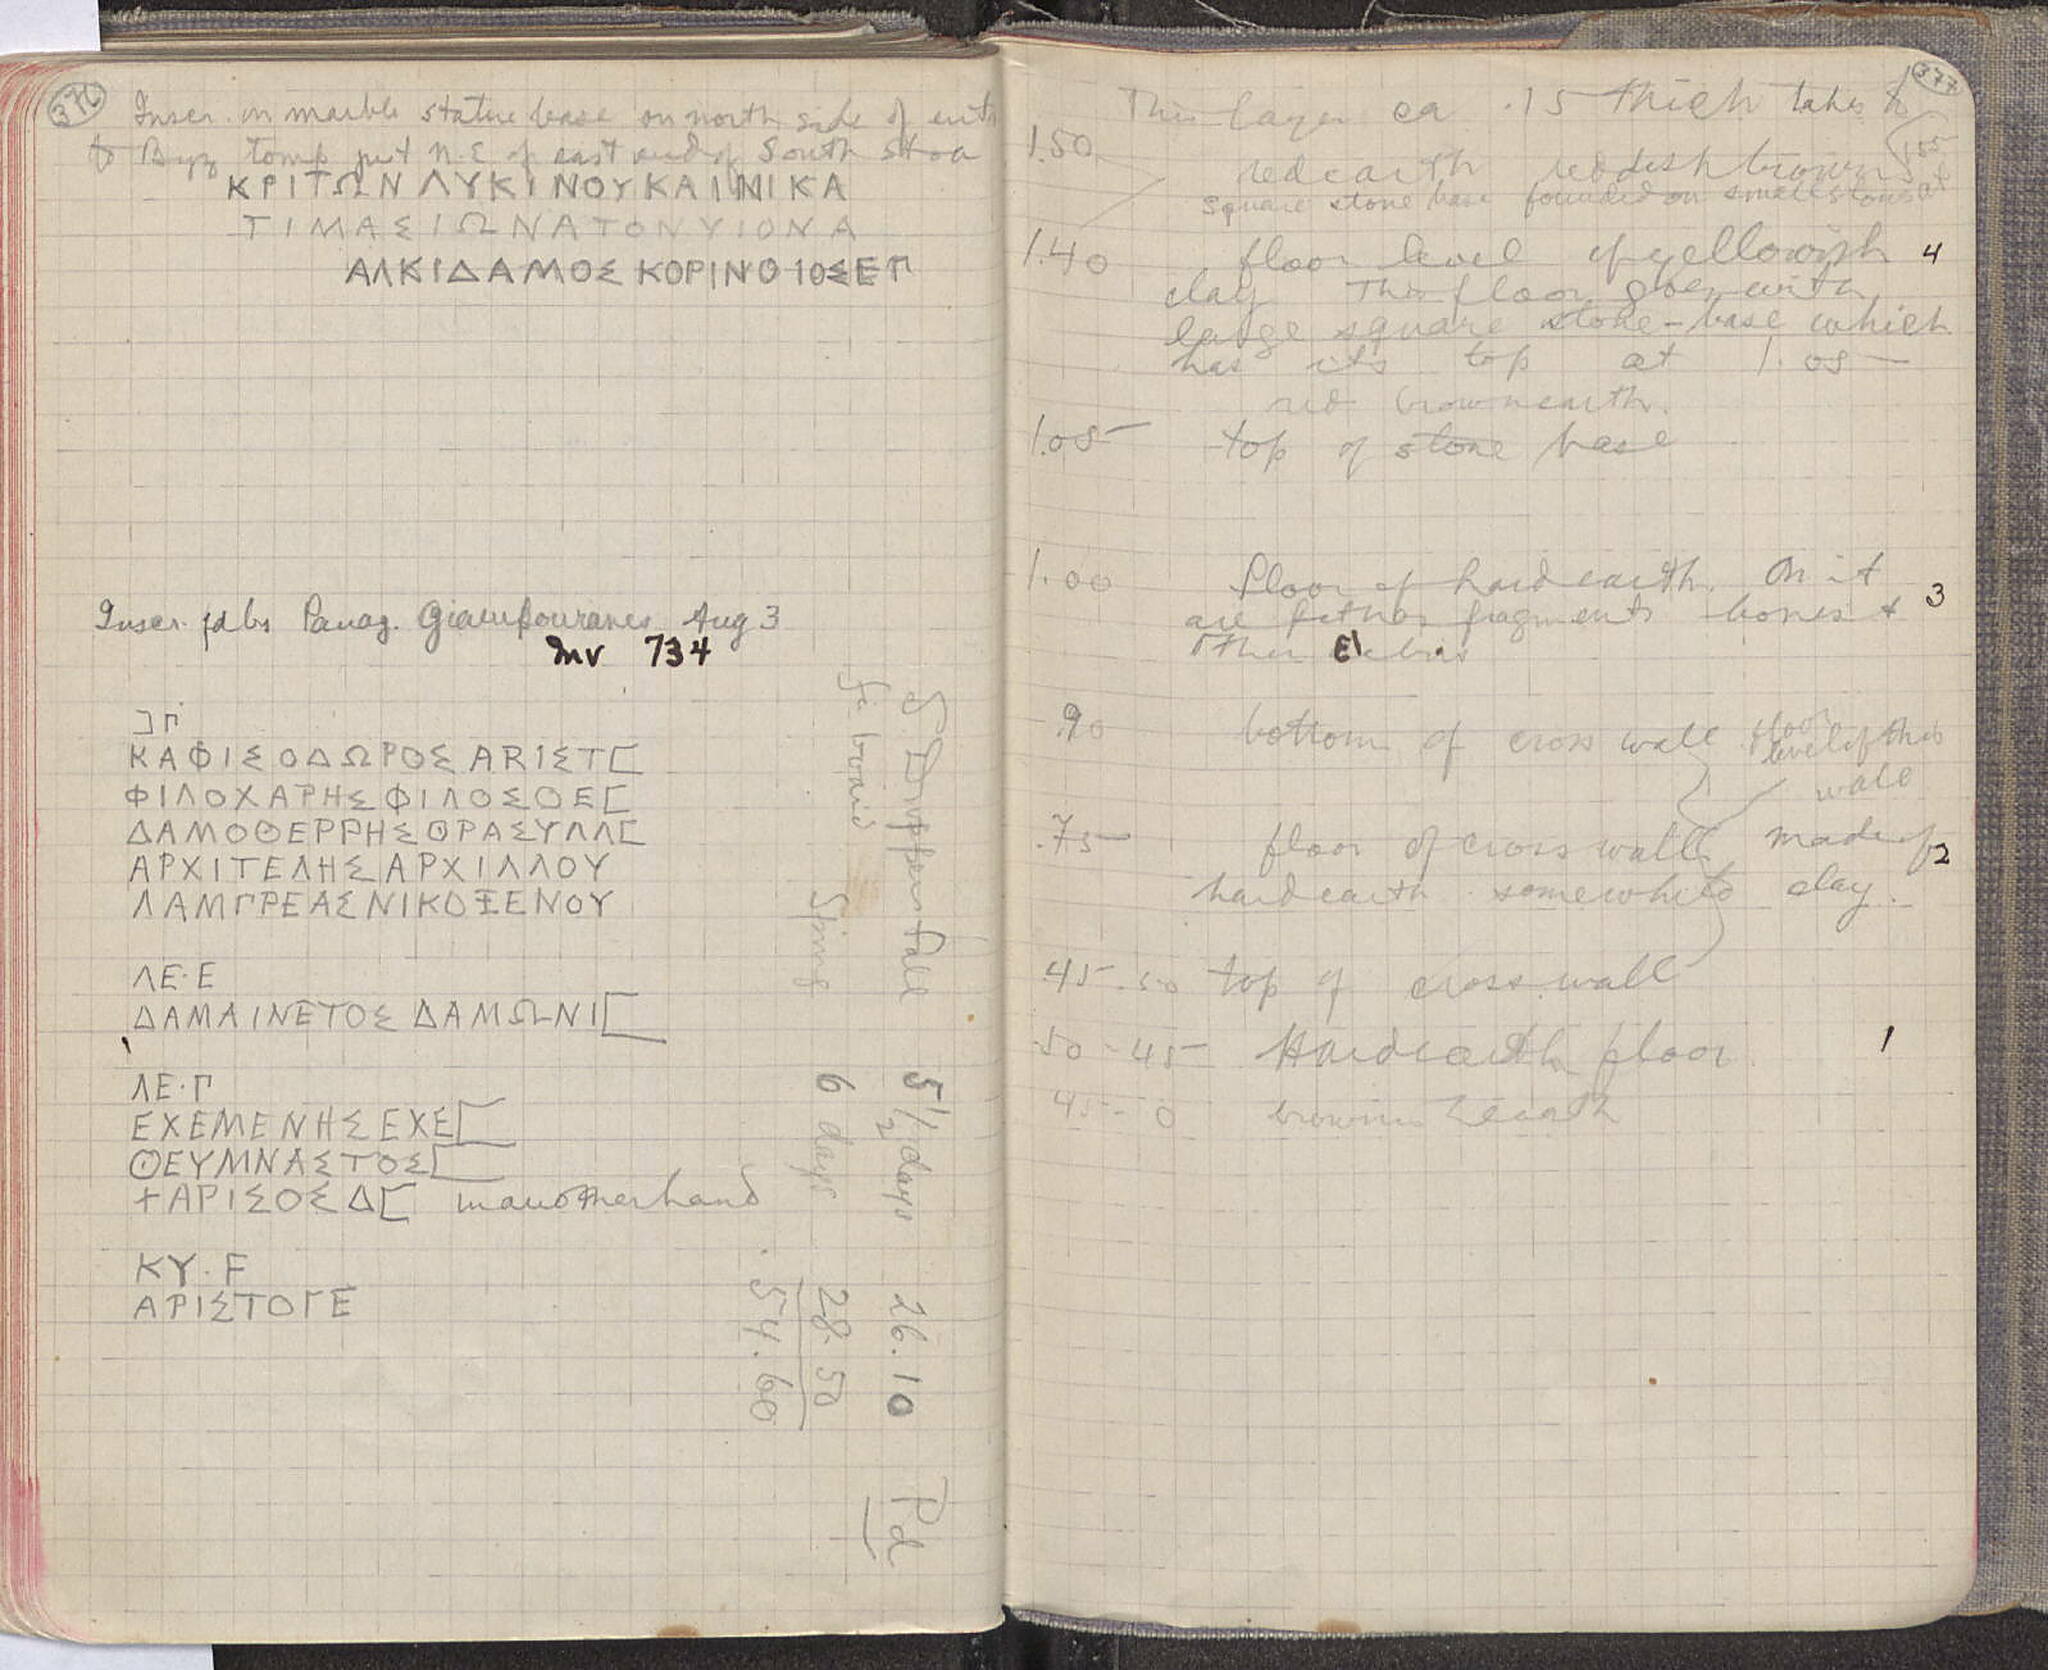 376
Inscr. on marble statue base on north side of entr
to Byz tomb just N.E of east end of South Stoa
ΚΡΙΤΩΝΛΥΚΙΝΟΥΚΑΙΝΙΚΑ
ΤΙΜΑΣΙΩΝΑΤΟΝΥΙΟΝΑ
ΑΛΚΙΔΑΜΟΣ ΚΟΡΙΝΘΙΟΣΕΠ
Inscr. fd by Panag. Aug 3
Inv 734
ΚΑΦΙΣΟΔΩΡΟΣ ΑRΙΣΤ[
ΦΙΛΟΧΑΡΗΣΦΙΛΟΣΘΕ[
ΔΑΜΟΘΕΡΡΗΣΘΡΑΣΥΛΛ[
ΑΡΧΙΤΕΛΗΣΑΡΧΙΛΛΟΥ
ΛΑΜΠΡΕΑΣΝΙΚΟΞΕΝΟΥ
ΛΕ·Ε
ΔΑΜΑΙΝΕΤΟΣ ΔΑΜΩΝΙ[
ΛΕ·Γ
ΕΧΕΜΕΝΗΣΕΧΕ[
ΘΕΥΜΝΑΣΤΟΣ[
+ΑΡΙΣΟΣΔ[ in another hand
ΚΥ·F
ΑΡΙΣΤΟΓΕ
S. Dropper fall 5 1/2 days 26.10 Pd
board Spring 6 days 28 50
54.60
377
This layer ca .15 thick takes to
1.55
1.50
red earth reddish brown
square stone base founded on small stones at
1.40 floor level of yellowish 4
clay This floor goes with
large square stone-base which
has its top at 1.05
red brown earth.
1.05 top of stone base
1.00 floor of hard earth. On it 3
are pithos fragments bones &
other debris
.90 bottom of cross wall floor
level of this
wall
.75 floor of cross wall made of 2
hard earth somewhite clay.
.45-.50 top of cross wall
.50-.45 Hard earth floor 1
.45-0 brownish earth